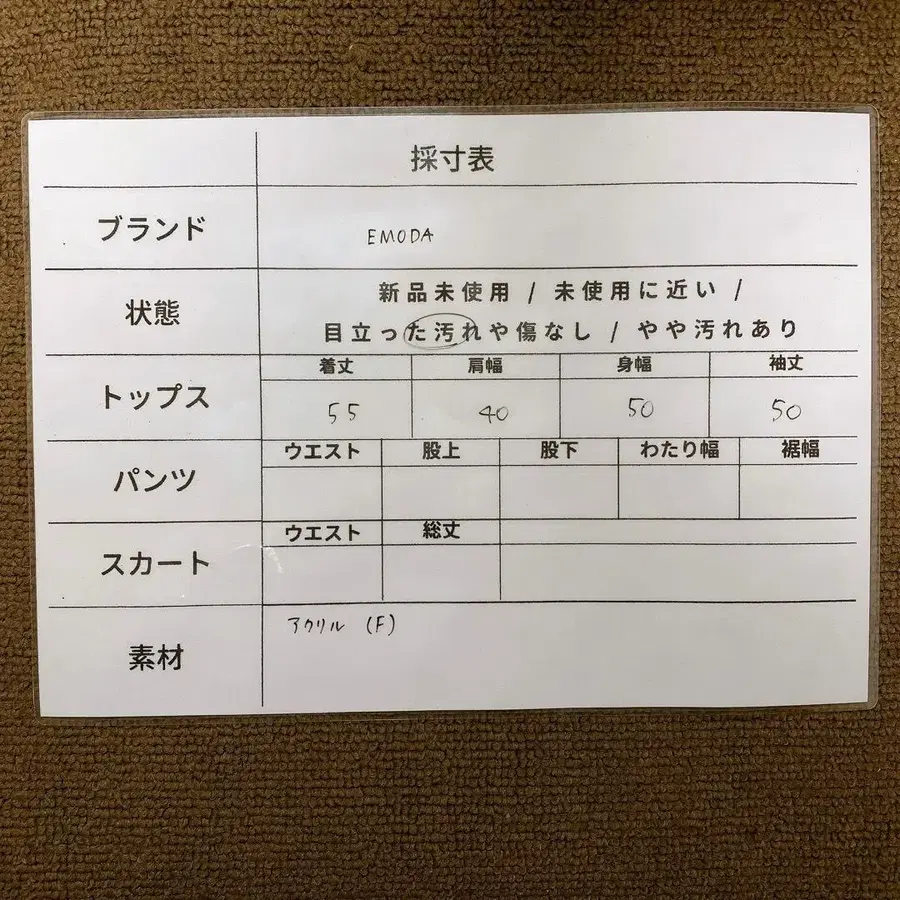 採寸表
ブランド
EMODA
状態
新品未使用 / 未使用に近い /
目立った汚れや傷なし / やや汚れあり
トップス
着丈 肩幅 身幅 袖丈
55 40 50 50
パンツ
ウエスト 股上 股下 わたり幅 裾幅
スカート
ウエスト 総丈
素材
アクリル (F)